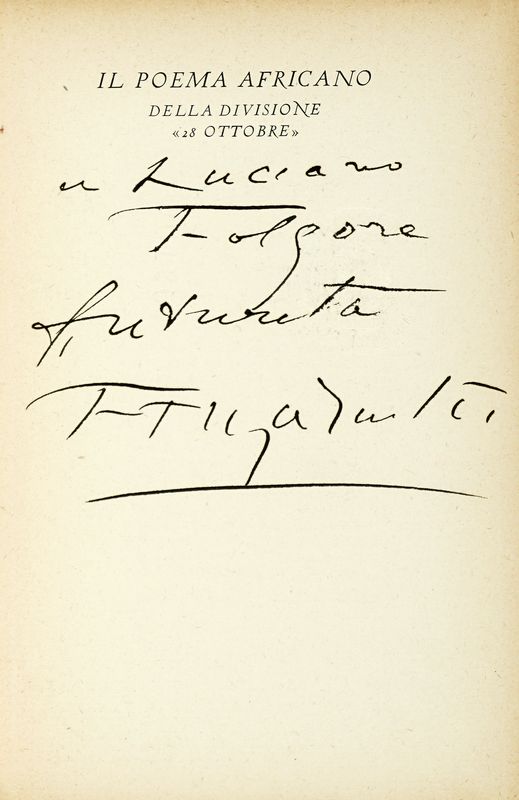 IL POEMA AFRICANO
DELLA DIVISIONE
«28 OTTOBRE»
a Luciano
Folgore
futurista
FTMarinetti